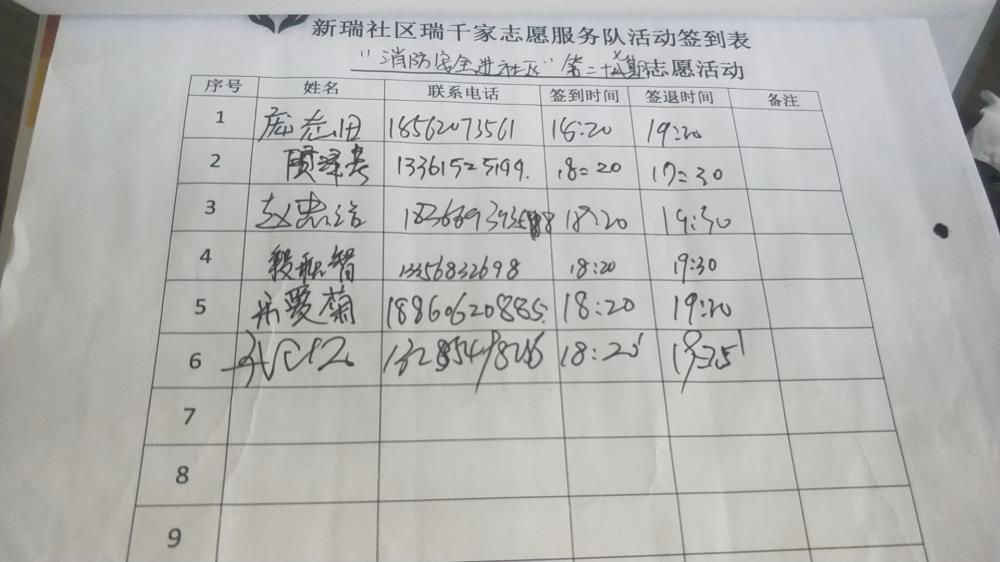 新瑞社区瑞千家志愿服务队活动签到表
"消防安全进社区"第二十 期志愿活动
序号 姓名 联系电话 签到时间 签退时间 备注
1 庞志田 18562073561 18:20 19:20
2 13361525199. 18:20 19:30
3 赵忠洁 18:20 19:30
4 智 13356832698 18:20 19:30
5 爱菊 18860620885. 18:20 19:20
6 18:25
7
8
9